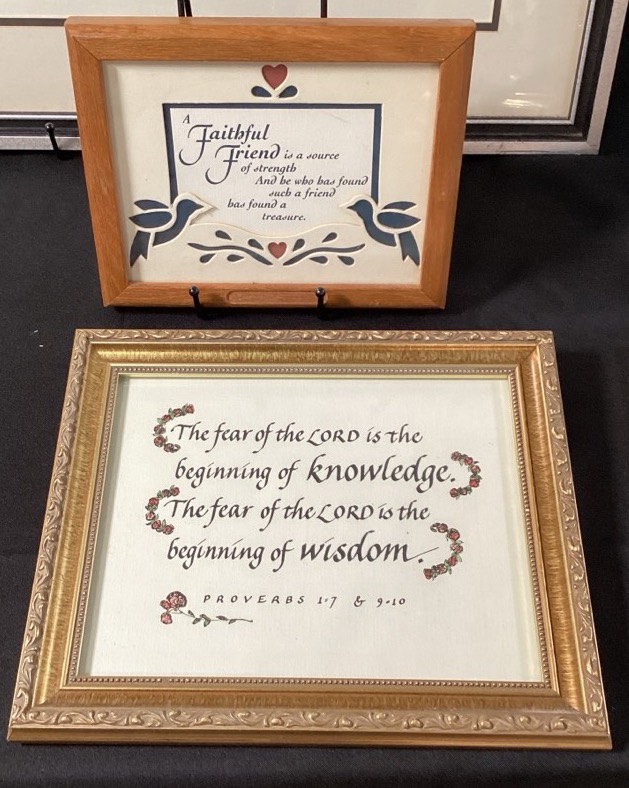 A
Faithful
Friend is a source
of strength
And he who has found
such a friend
has found a
treasure.
The fear of the LORD is the
beginning of knowledge.
The fear of the LORD is the
beginning of wisdom.
PROVERBS 1·7 & 9·10